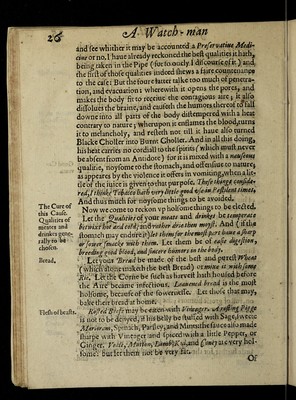 26 A Watch-man
and see whether it may be accounted a Preservative Medi-
cine or no, I have already reckoned the best qualities it hath,
being taken in the Pipe (for so onely I discourse of it) and
the first of those qualities indeed shews a faire countenance
to the case: But the foure latter talke too much of penetra-
tion, and evacuation: wherewith it opens the pores, and
makes the body fit to receive the contagious aire; it also
dissolves the braine, and causeth the humors thereof to fall
downe into all parts of the body distempered with a heat
contrary to nature; whereupon it enflames the bloud, turns
it to melancholy, and resteth not till it have also turned
Blacke Choller into Burnt Choller. And in all this doing,
his heat carries no cordiall to the spirits (which must never
be absent from an Antidote) for it is mixed with a nauseous
qualitie, noysome to the stomach, and offensive to nature,
as appeares by the violence it offers in vomiting, when a lit-
tle of the juice is given to that purpose. These things conside-
red, I thinke Tobacco hath very little good use in Pestilent times,
And thus much for noysome things to be avoided.
Now we come to reckon up holsome things to be elected.
Let the Qualities of your meats and drinkes be temperate
betwixt hot and cold; and rather drie then moyst. And (if the
stomach may endure it) let them for the most part have a sharp
or sower smacke with them. Let them be of easie digestion,
breeding good blood, and sincere humors in the body.
The Cure of
this Cause.
Qualities of
meates and
drinkes gene-
rally to be
chosen.
Bread.
Let your Bread be made of the best and purest Wheat
(which alone maketh the best Bread) or mixe it with some
Rie. Let the Corne be such as harvest hath housed before
the Aire became infectious. Leavened bread is the most
holsome, because of the sowernesse. Let those that may,
bake their bread at home.
Flesh of beasts.
Rosted Biefe may be eaten with Vineager. A rosting Pigge
is not to be denyed, if his belly be stuffed with Sage, sweete
Marioram, Spinach, Parsley, and Mints, the sauce also made
sharpe with Vineager and spiced with a little Pepper, or
Ginger. Veale, Mutton, Lambe, Kid, and Coney are very hol-
some: but let them not be very fat.
Of